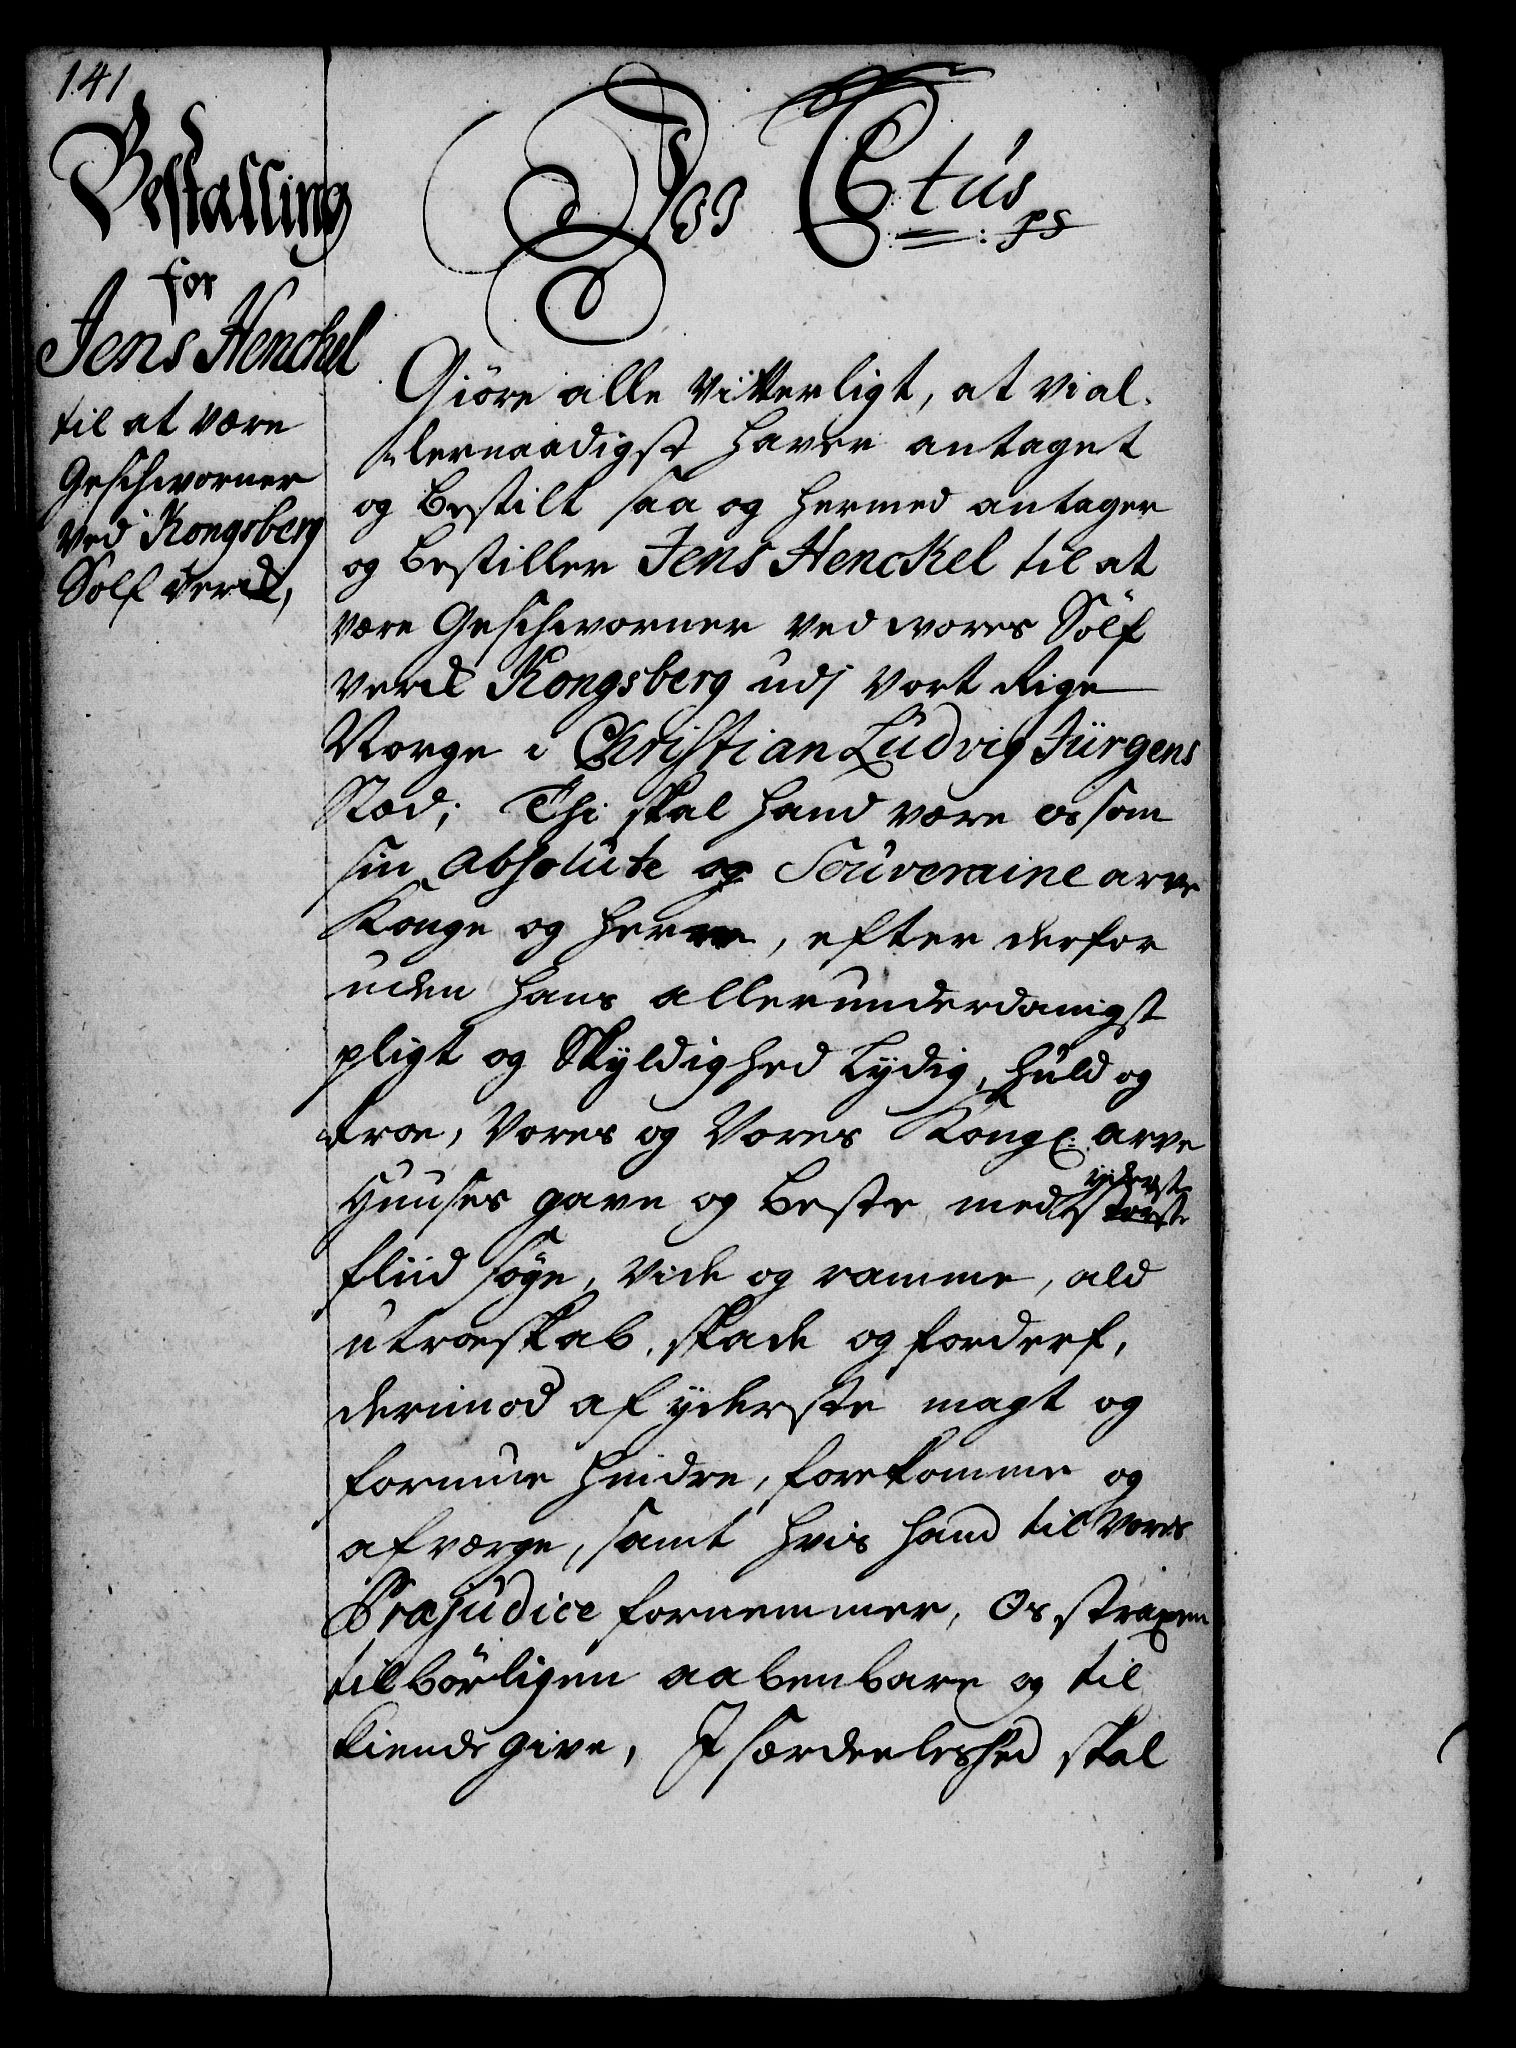 141
Bestalling
for
Jens Henckel
til at være
Geschworner
ved Kongsberg
Sölf Verck,
Wii CEtus
Giöre alle Vitterligt, at vi al-
lernaadigst haver antaget
og bestilt saa og hermed antager
og bestiller Jens Henckel til at
være Geschworner ved wores Sölf
Verck Kongsberg udj Vort Rige
Norge i Christian Ludvig Jürgens
Stæd; Thi skal hand være os som
sin absolute og Souveraine arve
Konge og Herre, efter derfor
uden hans allerunderdanigst
pligt og Skyldighed Lydig, huld og
troe, Vores og Vores Kongl: arve
Huuses gavn og beste med yderste
fliid söge, vide og ramme, ald
utroeskab, skade og forderf,
derimod af yderste magt og
formue hindre, forekomme og
afværge, samt hvis hand til Vores
Præjudice fornemmer, Os straxen
tilbörligen aabenbare og til
kiende give, Jsærdeeleshed skal